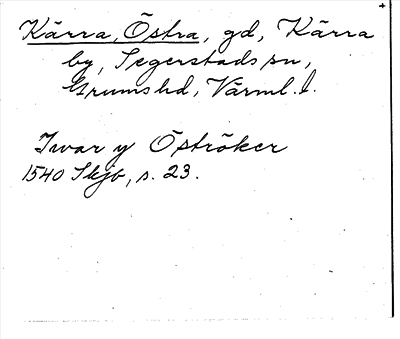 Kärra, Östra, gd, Kärra
by, Segerstads sn,
Grums hd, Värml. l.
Iwar y Öströker
1540 Skjb, s. 23.